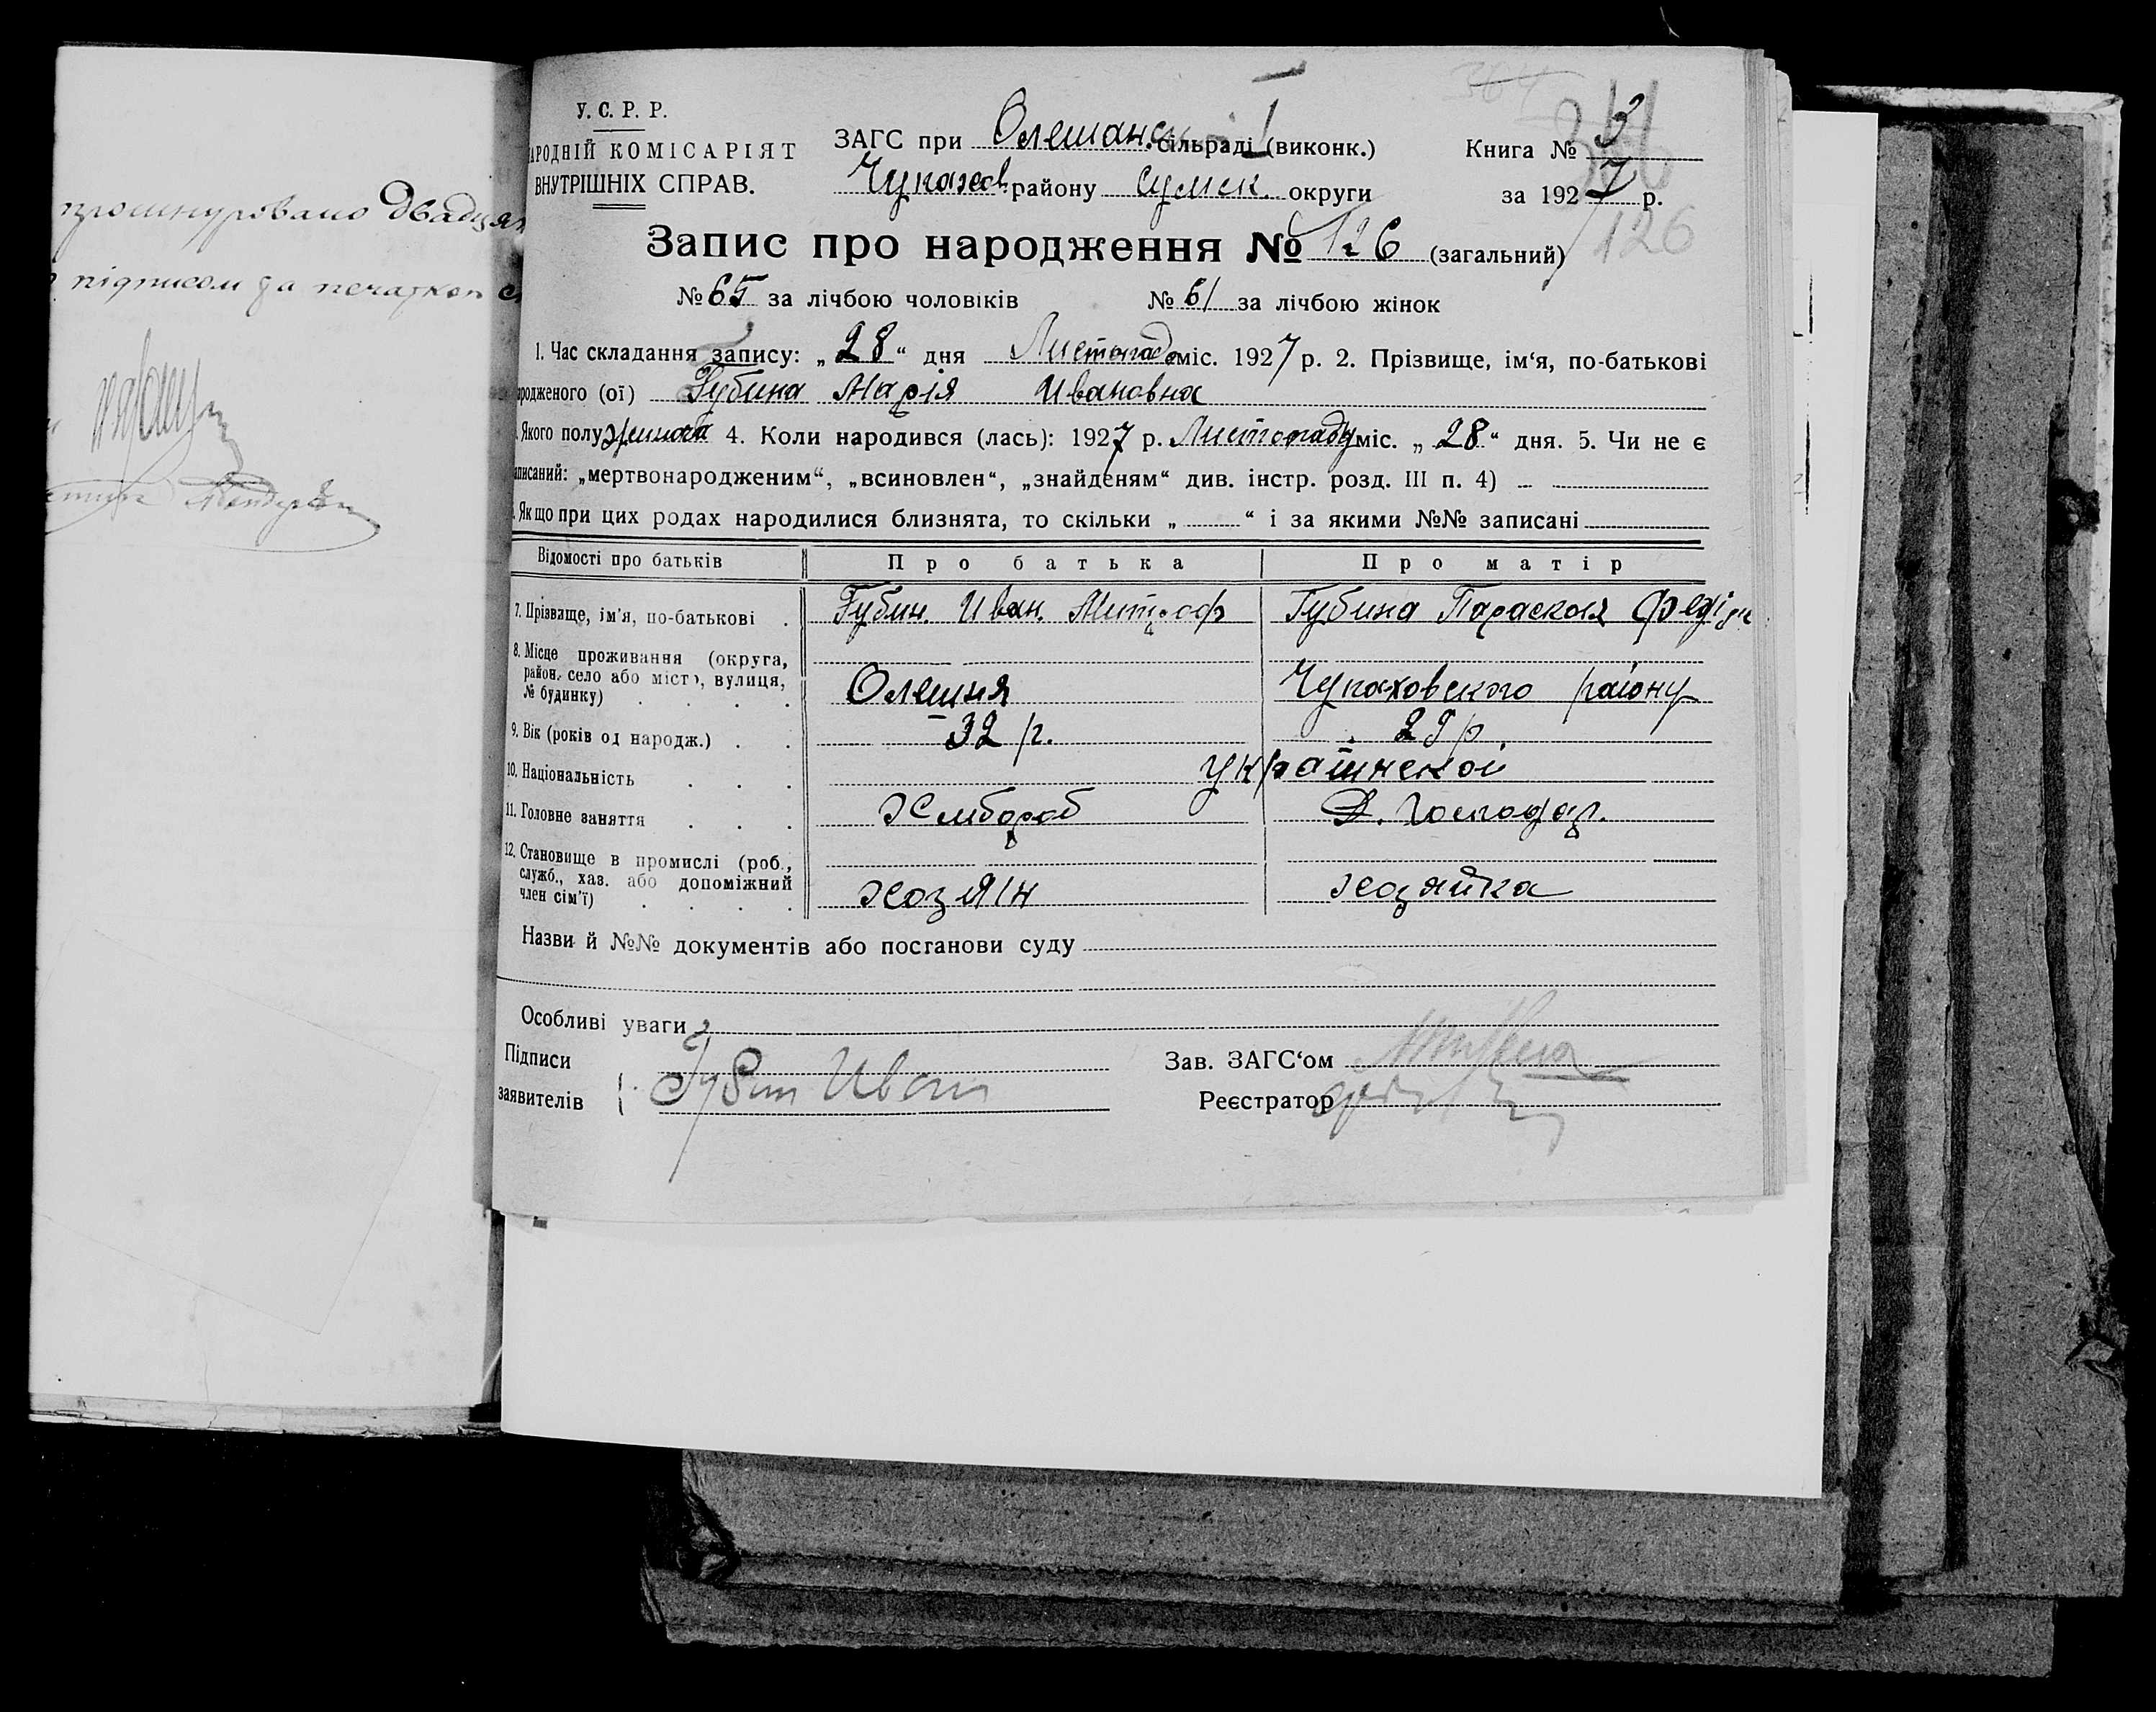 прошнуровано двадцят
підписом да печаткою с
У. С. Р. Р.
АРОДНІЙ КОМІСАРІЯТ
ВНУТРІШНІХ СПРАВ.
ЗАГС при Олешанск. сільраді (виконк.)
Чупахов. району Сумск. округи
Книга № 3
за 1927 р.
Запис про народження № 126 (загальний)
126
№ 65 за лічбою чоловіків № 61 за лічбою жінок
1. Час складання запису: „28“ дня Листопада міс. 1927 р. 2. Прізвище, ім‘я, по-батькові
ародженого (ої) Губина Марія Ивановна
Якого полу жиноча 4. Коли народився (лась): 1927 р. Листопаду міс. „28“ дня. 5. Чи не є
аписаний: „мертвонародженим“, „всиновлен“, „знайденям“ див. інстр. розд. III п. 4) –
Якщо при цих родах народилися близнята, то скільки „ “ і за якими №№ записані
Відомості про батьків Про батька Про матір
7. Прізвище, ім‘я, по-батькові Губин. Иван. Митроф Губина Параскоя Федірк
8. Місце проживання (округа,
район, село або місто, вулиця,
№ будинку) Олешня Чупаховского району
9. Вік (років од народж.) 32 р. 29 р
10. Національність украінской
11. Головне заняття Хлибороб Д. Господар.
12. Становище в промислі (роб.,
служб., хаз. або допоміжний
член сім‘ї) хозяін хозяйка
Назви й №№ документів або постанови суду
Особливі уваги
Підписи
заявителів Губин Иван
Зав. ЗАГС‘ом
Реєстратор